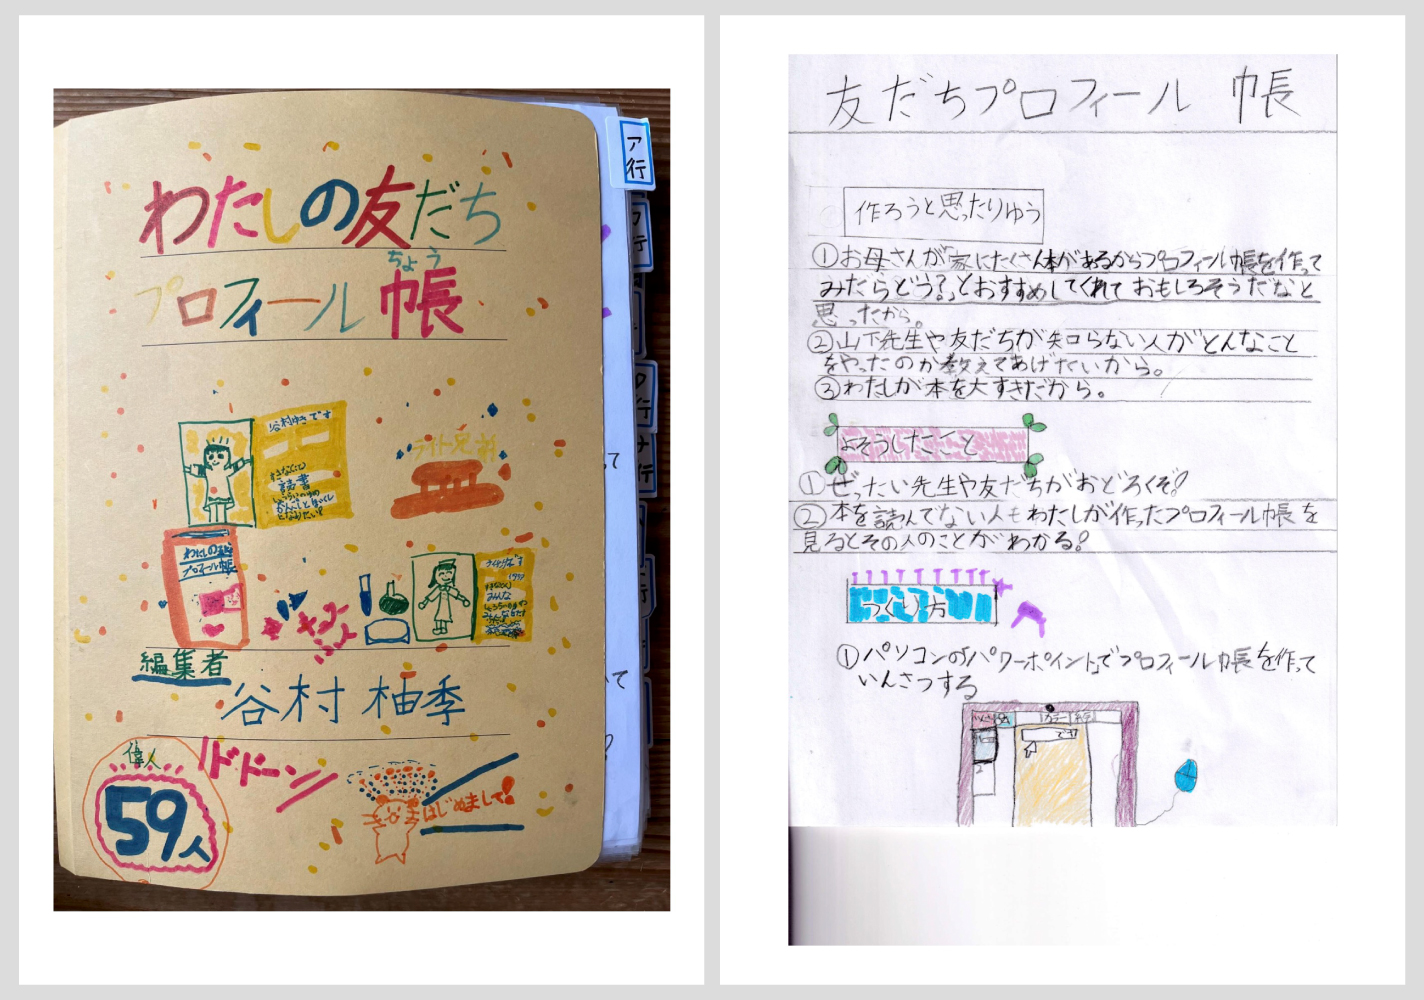 わたしの友だち
ちょう
プロフィール 帳
谷村ゆきです
読書
ライト兄弟
わたしの友だち
プロフィール帳
編集者
谷村 柚季
偉人
59人
ドドーン
はじめまして!
ア行
友だちプロフィール 帳
作ろうと思ったりゆう
①お母さんが家にたくさん本があるからプロフィール帳を作って
みたらどう?」とおすすめしてくれて おもしろそうだなと
思ったから。
②山下先生や友だちが知らない人がどんなこと
をやったのか教えてあげたいから。
③わたしが本を大すきだから。
よそうしたこと
①ぜったい先生や友だちがおどろくぞ!
②本を読んでない人もわたしが作ったプロフィール帳を
見るとその人のことがわかる!
つくり方
①パソコンの「パワーポイント」でプロフィール帳を作って
いんさつする